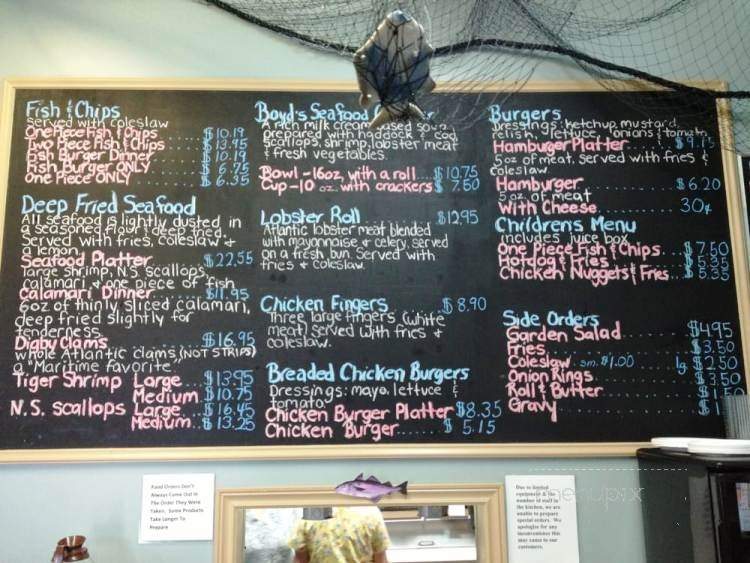 Fish & Chips
Served with coleslaw
One Piece Fish & Chips ..... $10.19
Two Piece Fish & Chips ..... $13.95
Fish Burger Dinner ..... $10.19
Fish Burger ONLY ..... $6.75
One Piece ONLY ..... $6.35
Deep Fried Seafood
All seafood is lightly dusted in
a seasoned flour & deep fried.
Served with fries, coleslaw &
a lemon.
Seafood Platter ..... $22.55
large shrimp, N.S. scallops,
calamari & one piece of fish
Calamari Dinner ..... $11.95
6oz of thinly sliced calamari,
deep fried slightly for
tenderness
Digby Clams ..... $16.95
whole Atlantic clams (NOT STRIPS)
a "Maritime favorite"
Tiger Shrimp Large .... $13.95
Medium. $10.75
N.S. scallops Large .... $16.45
Medium.... $13.25
Boyd's Seafood
A rich milk cream based soup
prepared with haddock & cod,
scallops, shrimp, lobster meat
& fresh vegetables.
Bowl -16oz, with a roll .... $10.75
Cup -10 oz. with crackers $7.50
Lobster Roll $12.95
Atlantic lobster meat blended
with mayonnaise & celery, served
on a fresh bun. Served with
fries & coleslaw.
Chicken Fingers ..... $8.90
Three large fingers (white
meat) served with fries &
coleslaw.
Breaded Chicken Burgers
Dressings: mayo, lettuce &
tomato
Chicken Burger Platter $8.35
Chicken Burger ..... $5.15
Burgers
Dressings: ketchup, mustard,
relish, lettuce, onions & tomato
Hamburger Platter ..... $9.15
5oz of meat, served with fries &
coleslaw.
Hamburger ..... $6.20
5oz. of meat
With Cheese ..... 30¢
Children's Menu
includes juice box
One Piece Fish & Chips ..... $7.50
Hotdog & Fries ..... $5.35
Chicken Nuggets & Fries ... $5.35
Side Orders
Garden Salad ..... $4.95
Fries ..... $3.50
Coleslaw .. sm. $1.00 lg $2.50
Onion Rings ..... $3.50
Roll & Butter ..... $1.50
Gravy ..... $1
Food Orders Don't
Always Come Out In
The Order They Were
Taken. Some Products
Take Longer To
Prepare
Due to limited
equipment & the
number of staff in
the kitchen, we are
unable to prepare
special orders. We
apologize for any
inconvenience this
may cause to our
customers.
menupix